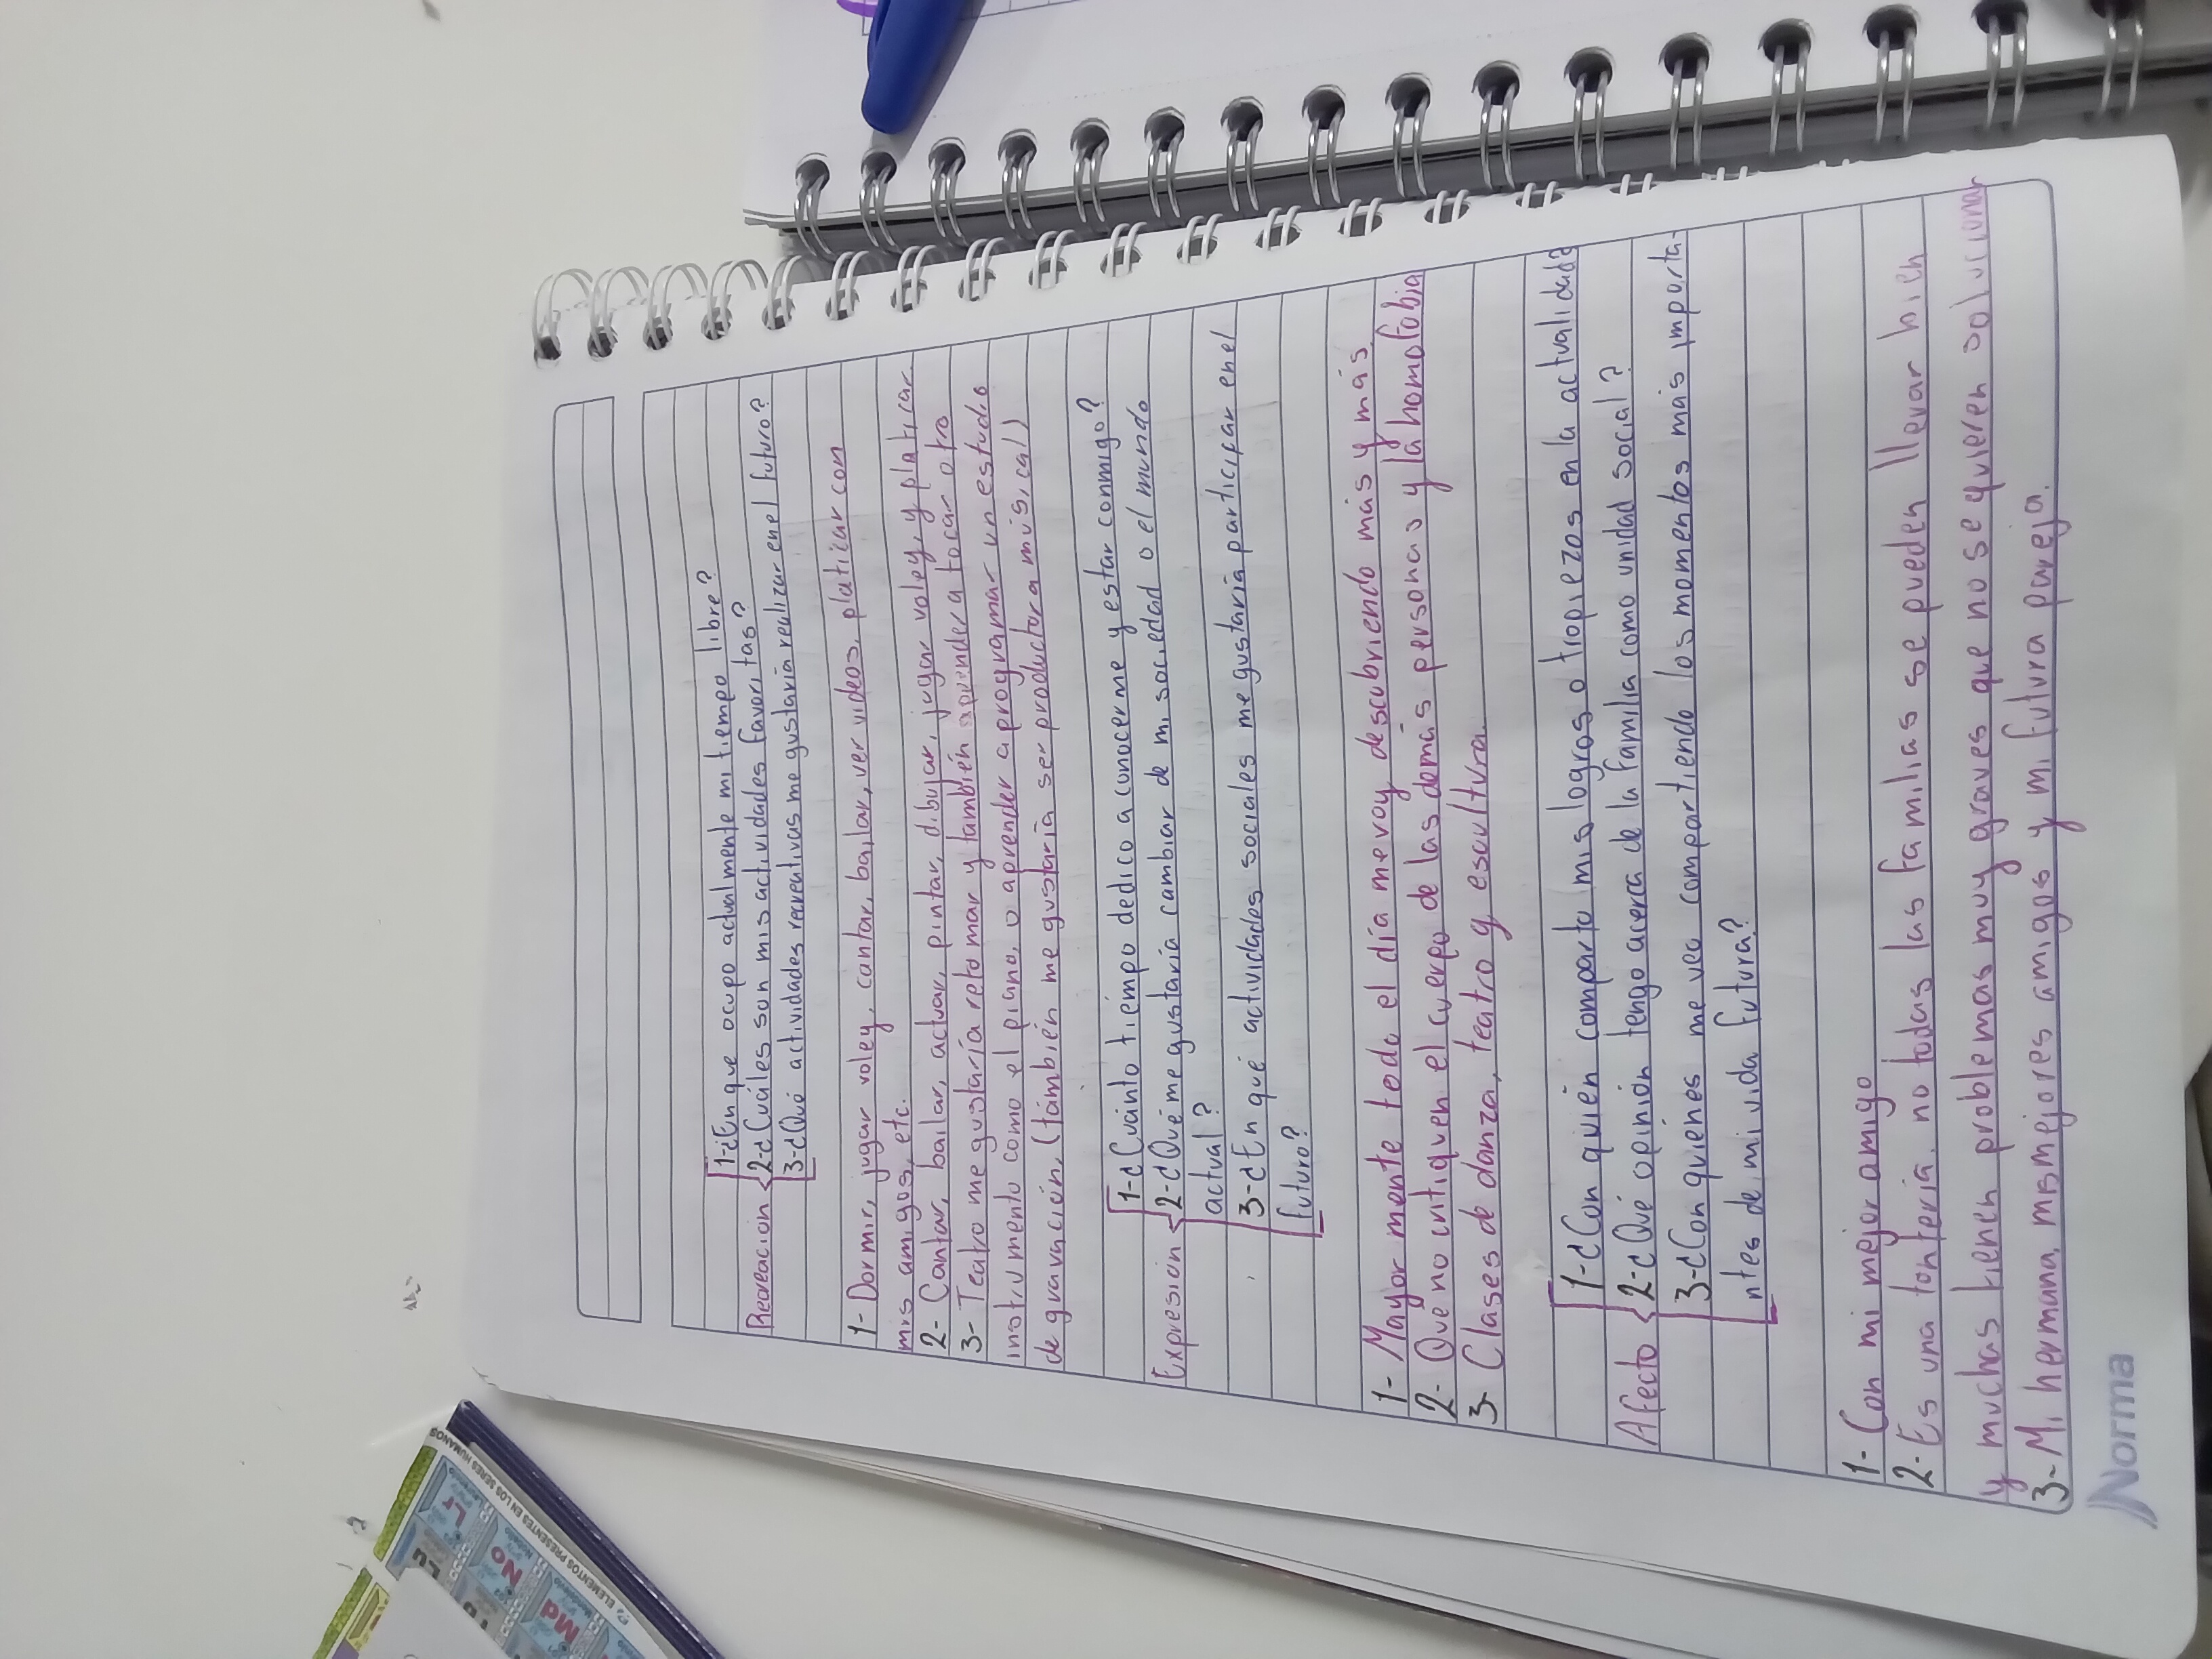 1-¿En que ocupo actualmente mi tiempo libre?
Recreación 2-¿Cuáles son mis actividades favoritas?
3-¿Qué actividades recreativas me gustaría realizar en el futuro?
1- Dormir, jugar voley, cantar, bailar, ver videos, platicar con
mis amigos, etc.
2- Cantar, bailar, actuar, pintar, dibujar, jugar voley, y platicar.
3- Teatro me gustaría retomar y también aprender a tocar otro
instrumento como el piano, o aprender a programar un estudio
de gravación, (támbién me gustaría ser productora musical)
1-¿Cuánto tiempo dedico a conocerme y estar conmigo?
Expresión 2-¿Qué me gustaría cambiar de mi sociedad o el mundo
actual?
3-¿En qué actividades sociales me gustaría participar en el
futuro?
1- Mayor mente todo el día me voy descubriendo más y más
2- Que no critiquen el cuerpo de las demás personas y la homofobia
3- Clases de danza, teatro y escultura.
1-¿Con quién comparto mis logros o tropiezos en la actualidad?
Afecto 2-¿Qué opinión tengo acerca de la familia como unidad social?
3-¿Con quiénes me veo compartiendo los momentos más importa-
ntes de mi vida futura?
1- Con mi mejor amigo
2- Es una tontería, no todas las familias se pueden llevar bien
y muchas tienen problemas muy graves que no se quieren solucionar
3- Mi hermana, mis mejores amigos y mi futura pareja.
Norma
ELEMENTOS PRESENTES EN LOS SERES HUMANOS
Lr
No
Md